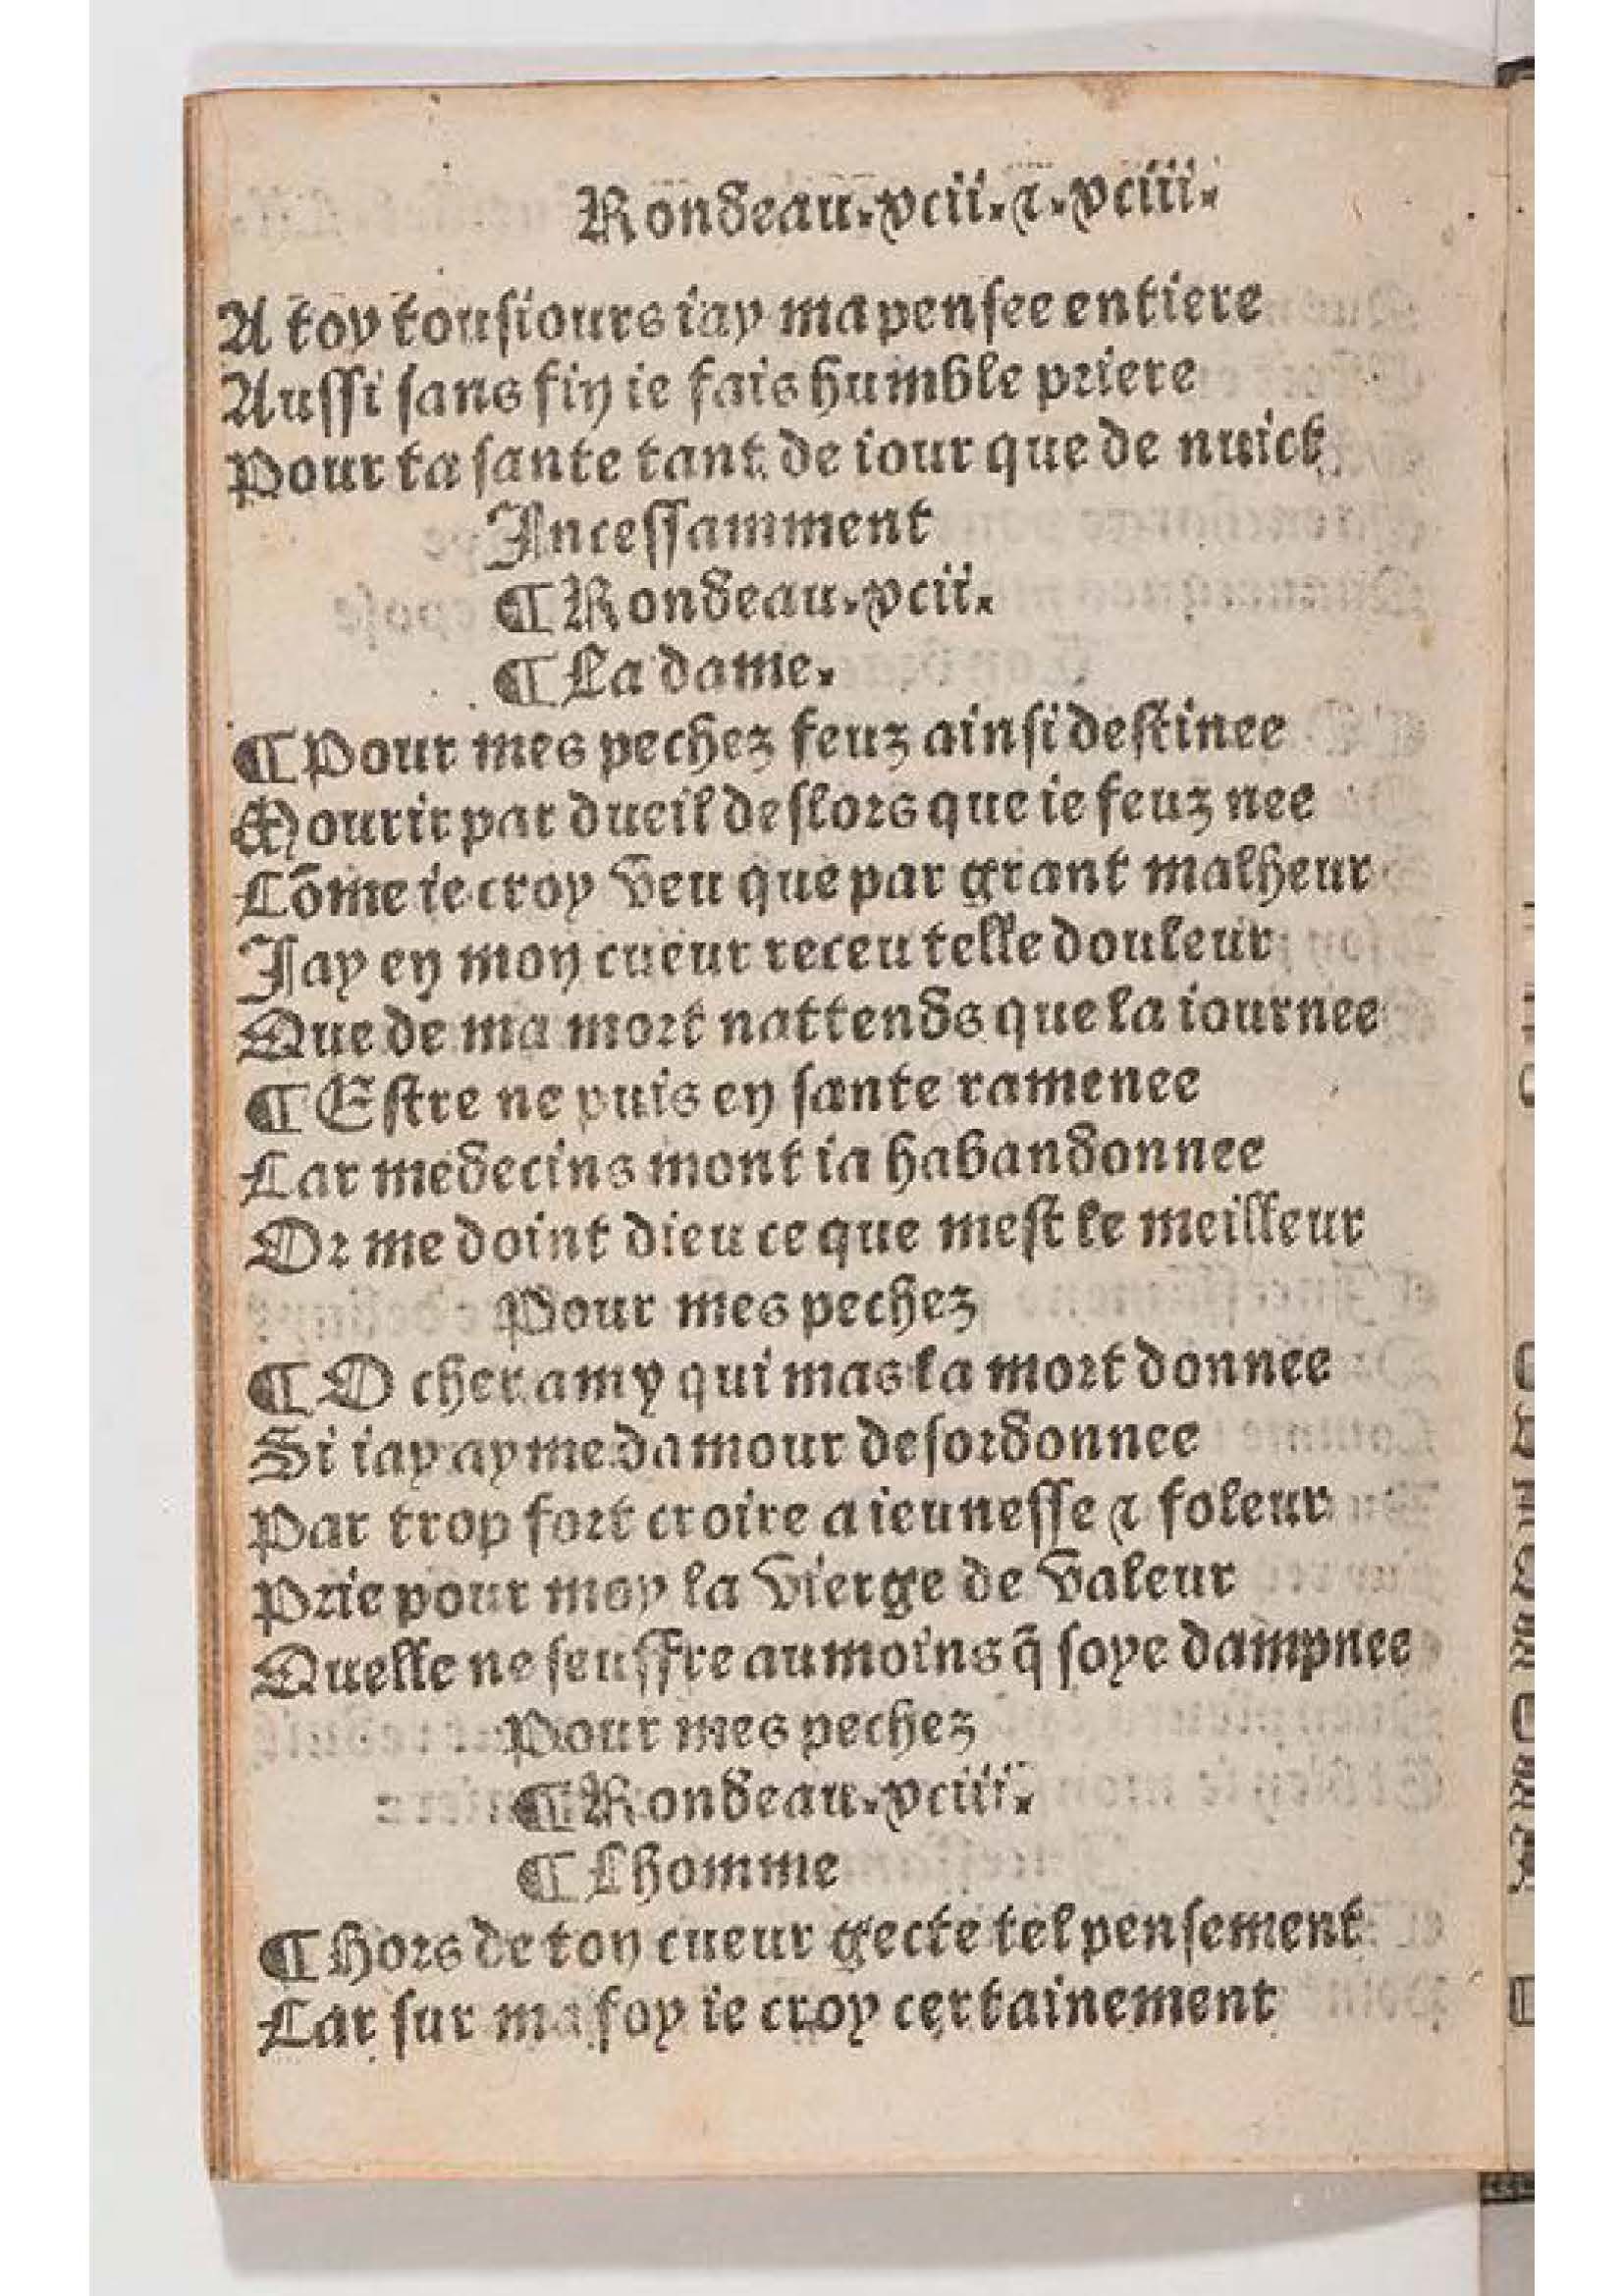 Rondeau.vcii.⁊.vciii.
A toy tousiours iay ma pensee entiere
Aussi sans fin ie fais humble priere
Pour ta sante tant de iour que de nuict
Incessamment
¶Rondeau.vcii.
¶La dame.
¶Pour mes pechez feuz ainsi destinee
Mourir par dueil deslors que ie feuz nee
Cõme ie croy veu que par grant malheur
Jay en mon cueur receu telle douleur
Que de ma mort nattends que la iournee
¶Estre ne puis en sante ramenee
Car medecins mont ia habandonnee
Or me doint dieu ce que mest le meilleur
Pour mes pechez
¶O cher amy qui mas la mort donnee
Si iay ayme damour desordonnee
Par trop fort croire a ieunesse ⁊ foleur
Prie pour moy la vierge de valeur
Quelle ne seuffre aumoins q̃ soye dampnee
Pour mes pechez
¶Rondeau.vciii.
¶Lhomme
¶Hors de ton cueur gecte tel pensement
Car sur ma foy ie croy certainement